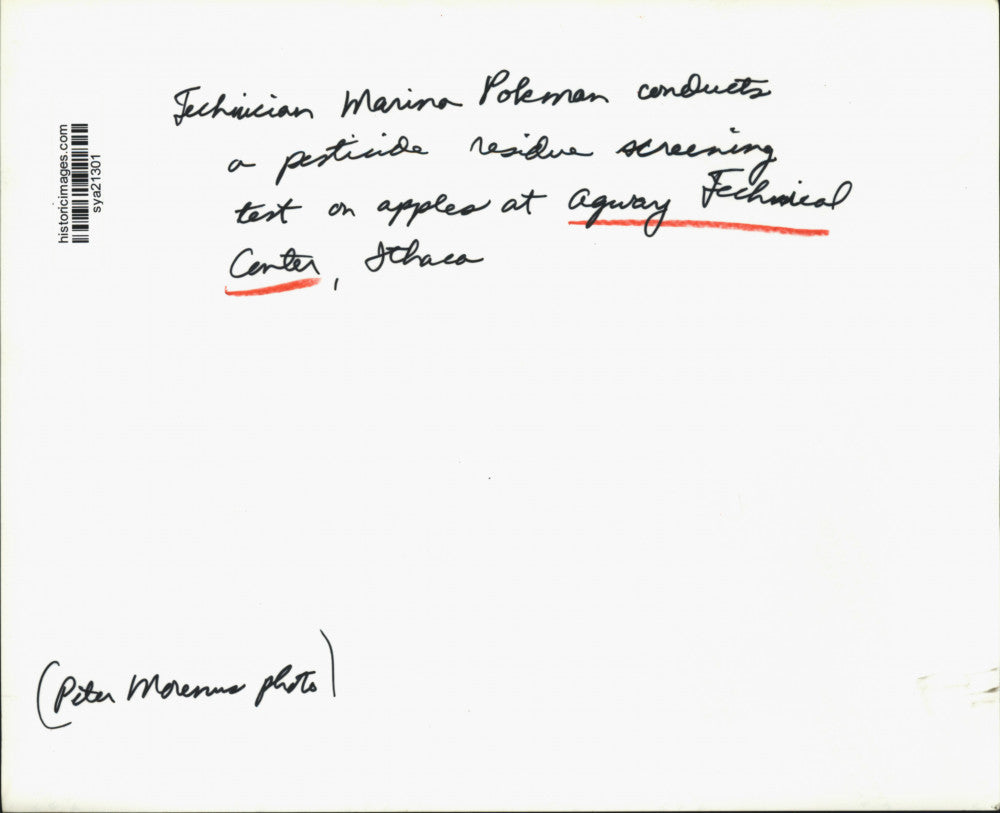 Technician Marina Pokman conducts
a pesticide residue screening
test on apples at Agway Technical
Center, Ithaca
historicimages.com
sya21301
(Peter Morenus photo)